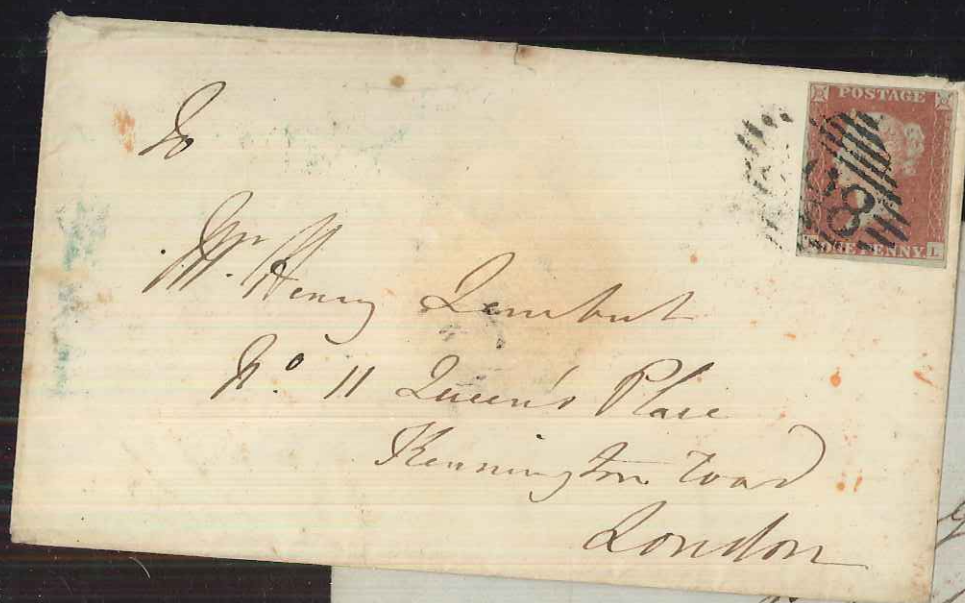 POSTAGE
ONE PENNY L
8
To
Mr. Henry
No. 11 Queen's Place
Kennington Road
London